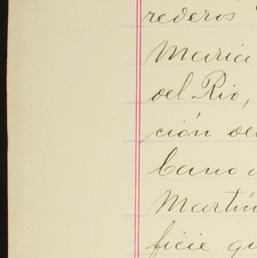 rederos
Maria
del Rio,
ción de
bano
Martín
ficie qu